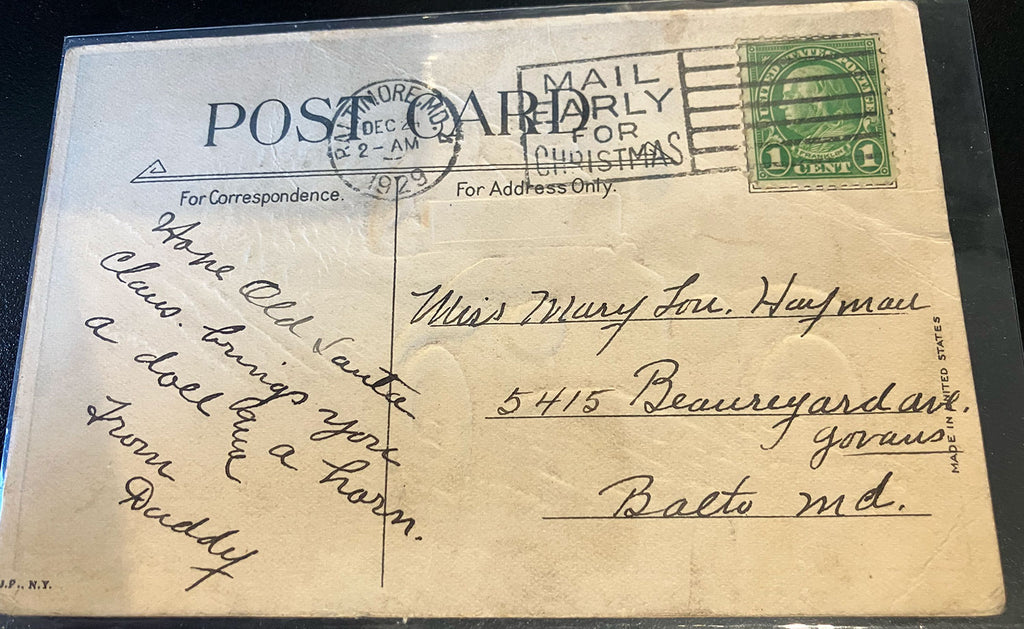 POST CARD
BALTIMORE, MD.
DEC 2
2 - AM
1929
MAIL
EARLY
FOR
CHRISTMAS
UNITED STATES POSTAGE
FRANKLIN
1 CENT 1
For Correspondence.
For Address Only.
Hope Old Santa
Claus. brings you
a doll and a horn.
From
Daddy
Miss Mary Lou. Hayman
5415 Beauregard ave.
Govans
Balto Md.
MADE IN UNITED STATES
J.P., N.Y.